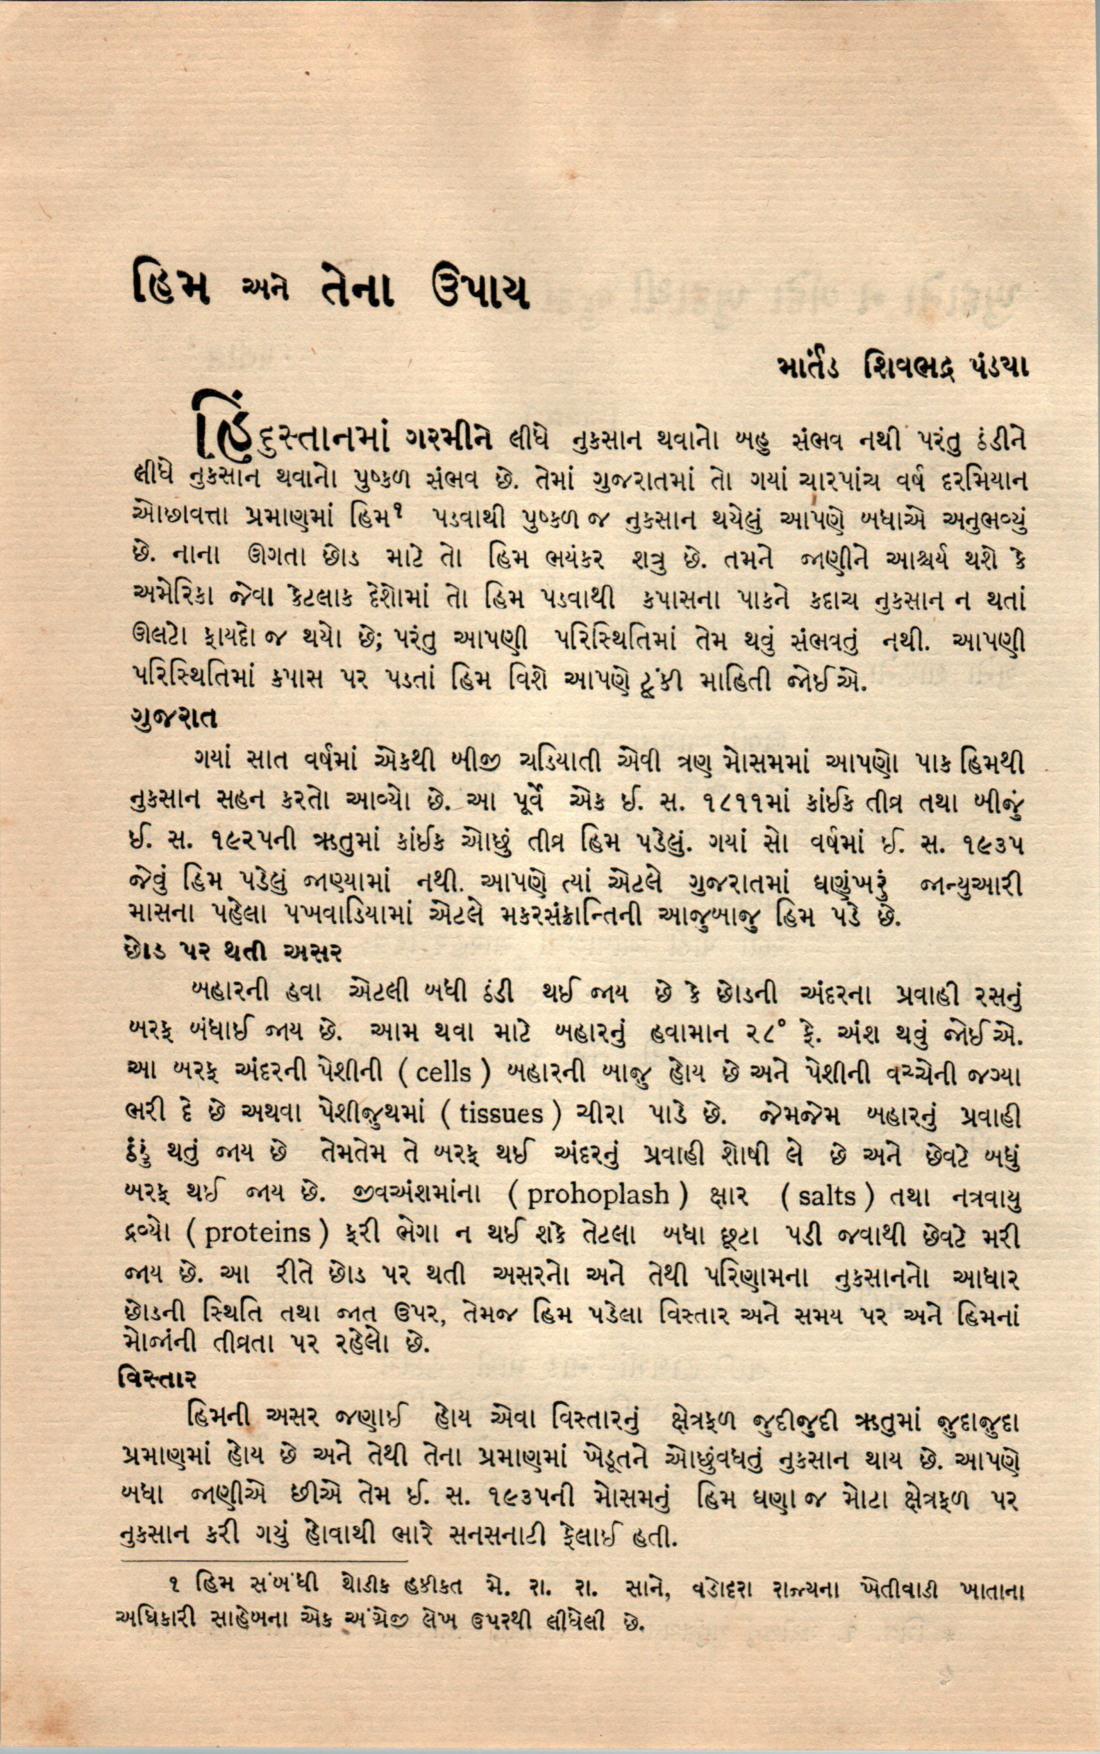 હિમ અને તેના ઉપાય
માર્તંડ શિવભદ્ર પંડ્યા
હિંદુસ્તાનમાં ગરમીને લીધે નુકસાન થવાનો બહુ સંભવ નથી પરંતુ ઠંડીને
લીધે નુકસાન થવાનો પુષ્કળ સંભવ છે. તેમાં ગુજરાતમાં તો ગયાં ચારપાંચ વર્ષ દરમિયાન
ઓછાવત્તા પ્રમાણમાં હિમ૧ પડવાથી પુષ્કળ જ નુકસાન થયેલું આપણે બધાએ અનુભવ્યું
છે. નાના ઊગતા છોડ માટે તો હિમ ભયંકર શત્રુ છે. તમને જાણીને આશ્ચર્ય થશે કે
અમેરિકા જેવા કેટલાક દેશોમાં તો હિમ પડવાથી કપાસના પાકને કદાચ નુકસાન ન થતાં
ઊલટો ફાયદો જ થયો છે; પરંતુ આપણી પરિસ્થિતિમાં તેમ થવું સંભવતું નથી. આપણી
પરિસ્થિતિમાં કપાસ પર પડતાં હિમ વિશે આપણે ટૂંકી માહિતી જોઈએ.
ગુજરાત
ગયાં સાત વર્ષમાં એકથી બીજી ચડિયાતી એવી ત્રણ મોસમમાં આપણો પાક હિમથી
નુકસાન સહન કરતો આવ્યો છે. આ પૂર્વે એક ઈ. સ. ૧૮૧૧માં કાંઈક તીવ્ર તથા બીજું
ઈ. સ. ૧૯૨૫ની ઋતુમાં કાંઈક ઓછું તીવ્ર હિમ પડેલું. ગયાં સો વર્ષમાં ઈ. સ. ૧૯૩૫
જેવું હિમ પડેલું જાણ્યામાં નથી. આપણે ત્યાં એટલે ગુજરાતમાં ઘણુંખરું જાન્યુઆરી
માસના પહેલા પખવાડિયામાં એટલે મકરસંક્રાન્તિની આજુબાજુ હિમ પડે છે.
છોડ પર થતી અસર
બહારની હવા એટલી બધી ઠંડી થઈ જાય છે કે છોડની અંદરના પ્રવાહી રસનું
બરફ બંધાઈ જાય છે. આમ થવા માટે બહારનું હવામાન ૨૮° ફે. અંશ થવું જોઈએ.
આ બરફ અંદરની પેશીની ( cells ) બહારની બાજુ હોય છે અને પેશીની વચ્ચેની જગ્યા
ભરી દે છે અથવા પેશીજુથમાં ( tissues ) ચીરા પાડે છે. જેમજેમ બહારનું પ્રવાહી
ઠંડું થતું જાય છે તેમતેમ તે બરફ થઈ અંદરનું પ્રવાહી શોષી લે છે અને છેવટે બધું
બરફ થઈ જાય છે. જીવઅંશમાંના ( prohoplash ) ક્ષાર ( salts ) તથા નત્રવાયુ
દ્રવ્યો ( proteins ) ફરી ભેગા ન થઈ શકે તેટલા બધા છૂટા પડી જવાથી છેવટે મરી
જાય છે. આ રીતે છોડ પર થતી અસરનો અને તેથી પરિણામના નુકસાનનો આધાર
છોડની સ્થિતિ તથા જાત ઉપર, તેમજ હિમ પડેલા વિસ્તાર અને સમય પર અને હિમનાં
મોજાંની તીવ્રતા પર રહેલો છે.
વિસ્તાર
હિમની અસર જણાઈ હોય એવા વિસ્તારનું ક્ષેત્રફળ જુદીજુદી ઋતુમાં જુદાજુદા
પ્રમાણમાં હોય છે અને તેથી તેના પ્રમાણમાં ખેડૂતને ઓછુંવધતું નુકસાન થાય છે. આપણે
બધા જાણીએ છીએ તેમ ઈ. સ. ૧૯૩૫ની મોસમનું હિમ ઘણા જ મોટા ક્ષેત્રફળ પર
નુકસાન કરી ગયું હોવાથી ભારે સનસનાટી ફેલાઈ હતી.
૧ હિમ સંબંધી થોડીક હકીકત મે. રા. રા. સાને, વડોદરા રાજ્યના ખેતીવાડી ખાતાના
અધિકારી સાહેબના એક અંગ્રેજી લેખ ઉપરથી લીધેલી છે.